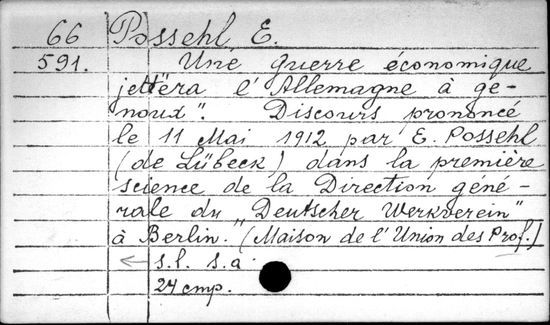 66 Possehl E.
591. Une guerre économique
jettera l'Allemagne à ge-
noux". Discours prononcé
le 11 Mai 1912 par E. Possehl
(de Lübeck) dans la première
science de la Direction géné-
rale du „Deutscher Werkverein"
à Berlin." (Maison de l'Union des Prof.)
s.l. s.a.
24 cmp.